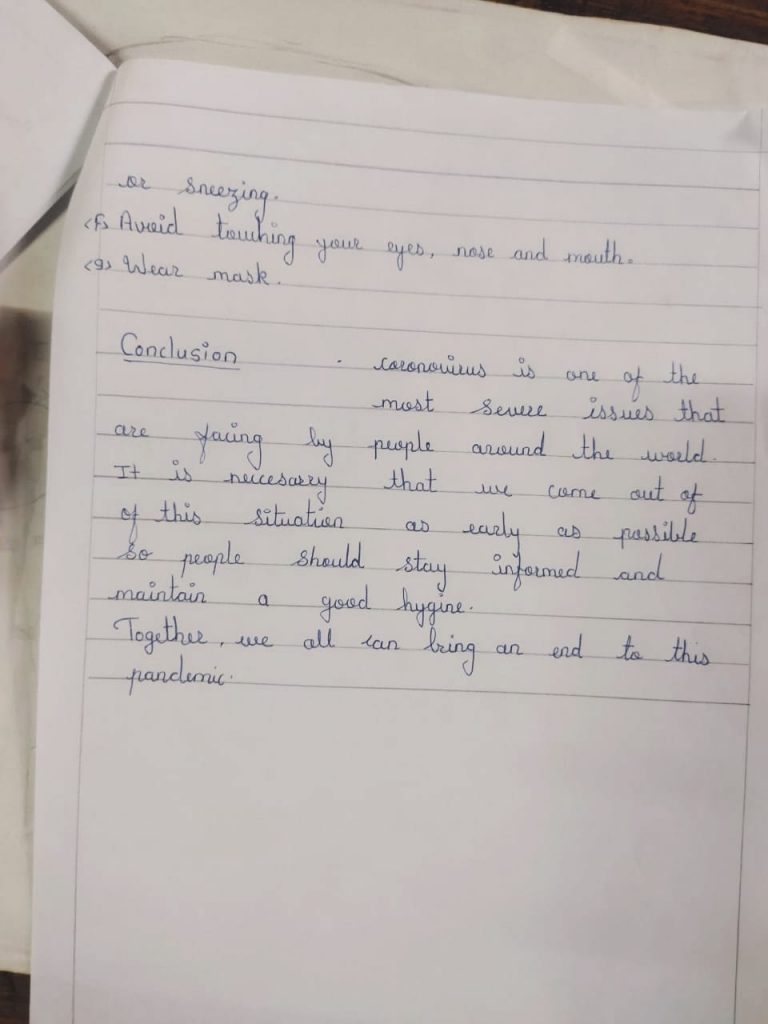 or sneezing.
(f) Avoid touching your eyes, nose and mouth.
(g) Wear mask.
Conclusion - coronovirus is one of the
most severe issues that
are facing by people around the world.
It is neccesarry that we come out of
of this situation as early as possible
So people should stay informed and
maintain a good hygine.
Together, we all can bring an end to this
pandemic.